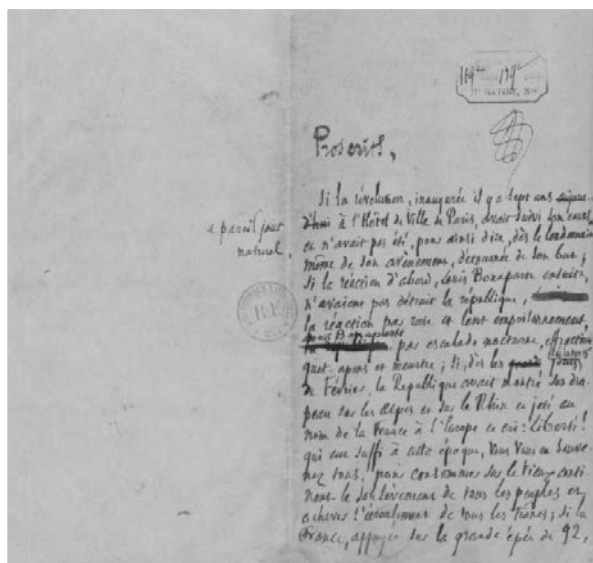 Proscrits,
Si la révolution, inaugurée il y a sept ans
à l'Hôtel de Ville de Paris, avait suivi son cours
et n'avait pas été, pour ainsi dire, dès le lendemain
même de son avènement, détournée de son but ;
si la réaction d'abord, Louis Bonaparte ensuite,
n'avaient pas détruit la république,
la réaction par ruse et lent empoisonnement,
Louis Bonaparte par escalade nocturne, effraction,
guet-apens et meurtre ; si, dès les jours
de Février, la République avait montré son dra-
peau sur les Alpes et sur le Rhin et jeté au
nom de la France à l'Europe ce cri : liberté !
qui eût suffi à cette époque, vous vous en souve-
nez tous, pour consommer sur le vieux conti-
nent le soulèvement de tous les peuples et
achever l'écroulement de tous les trônes ; si la
France, appuyée sur la grande épée de 92,
a pareil jour
naturel,